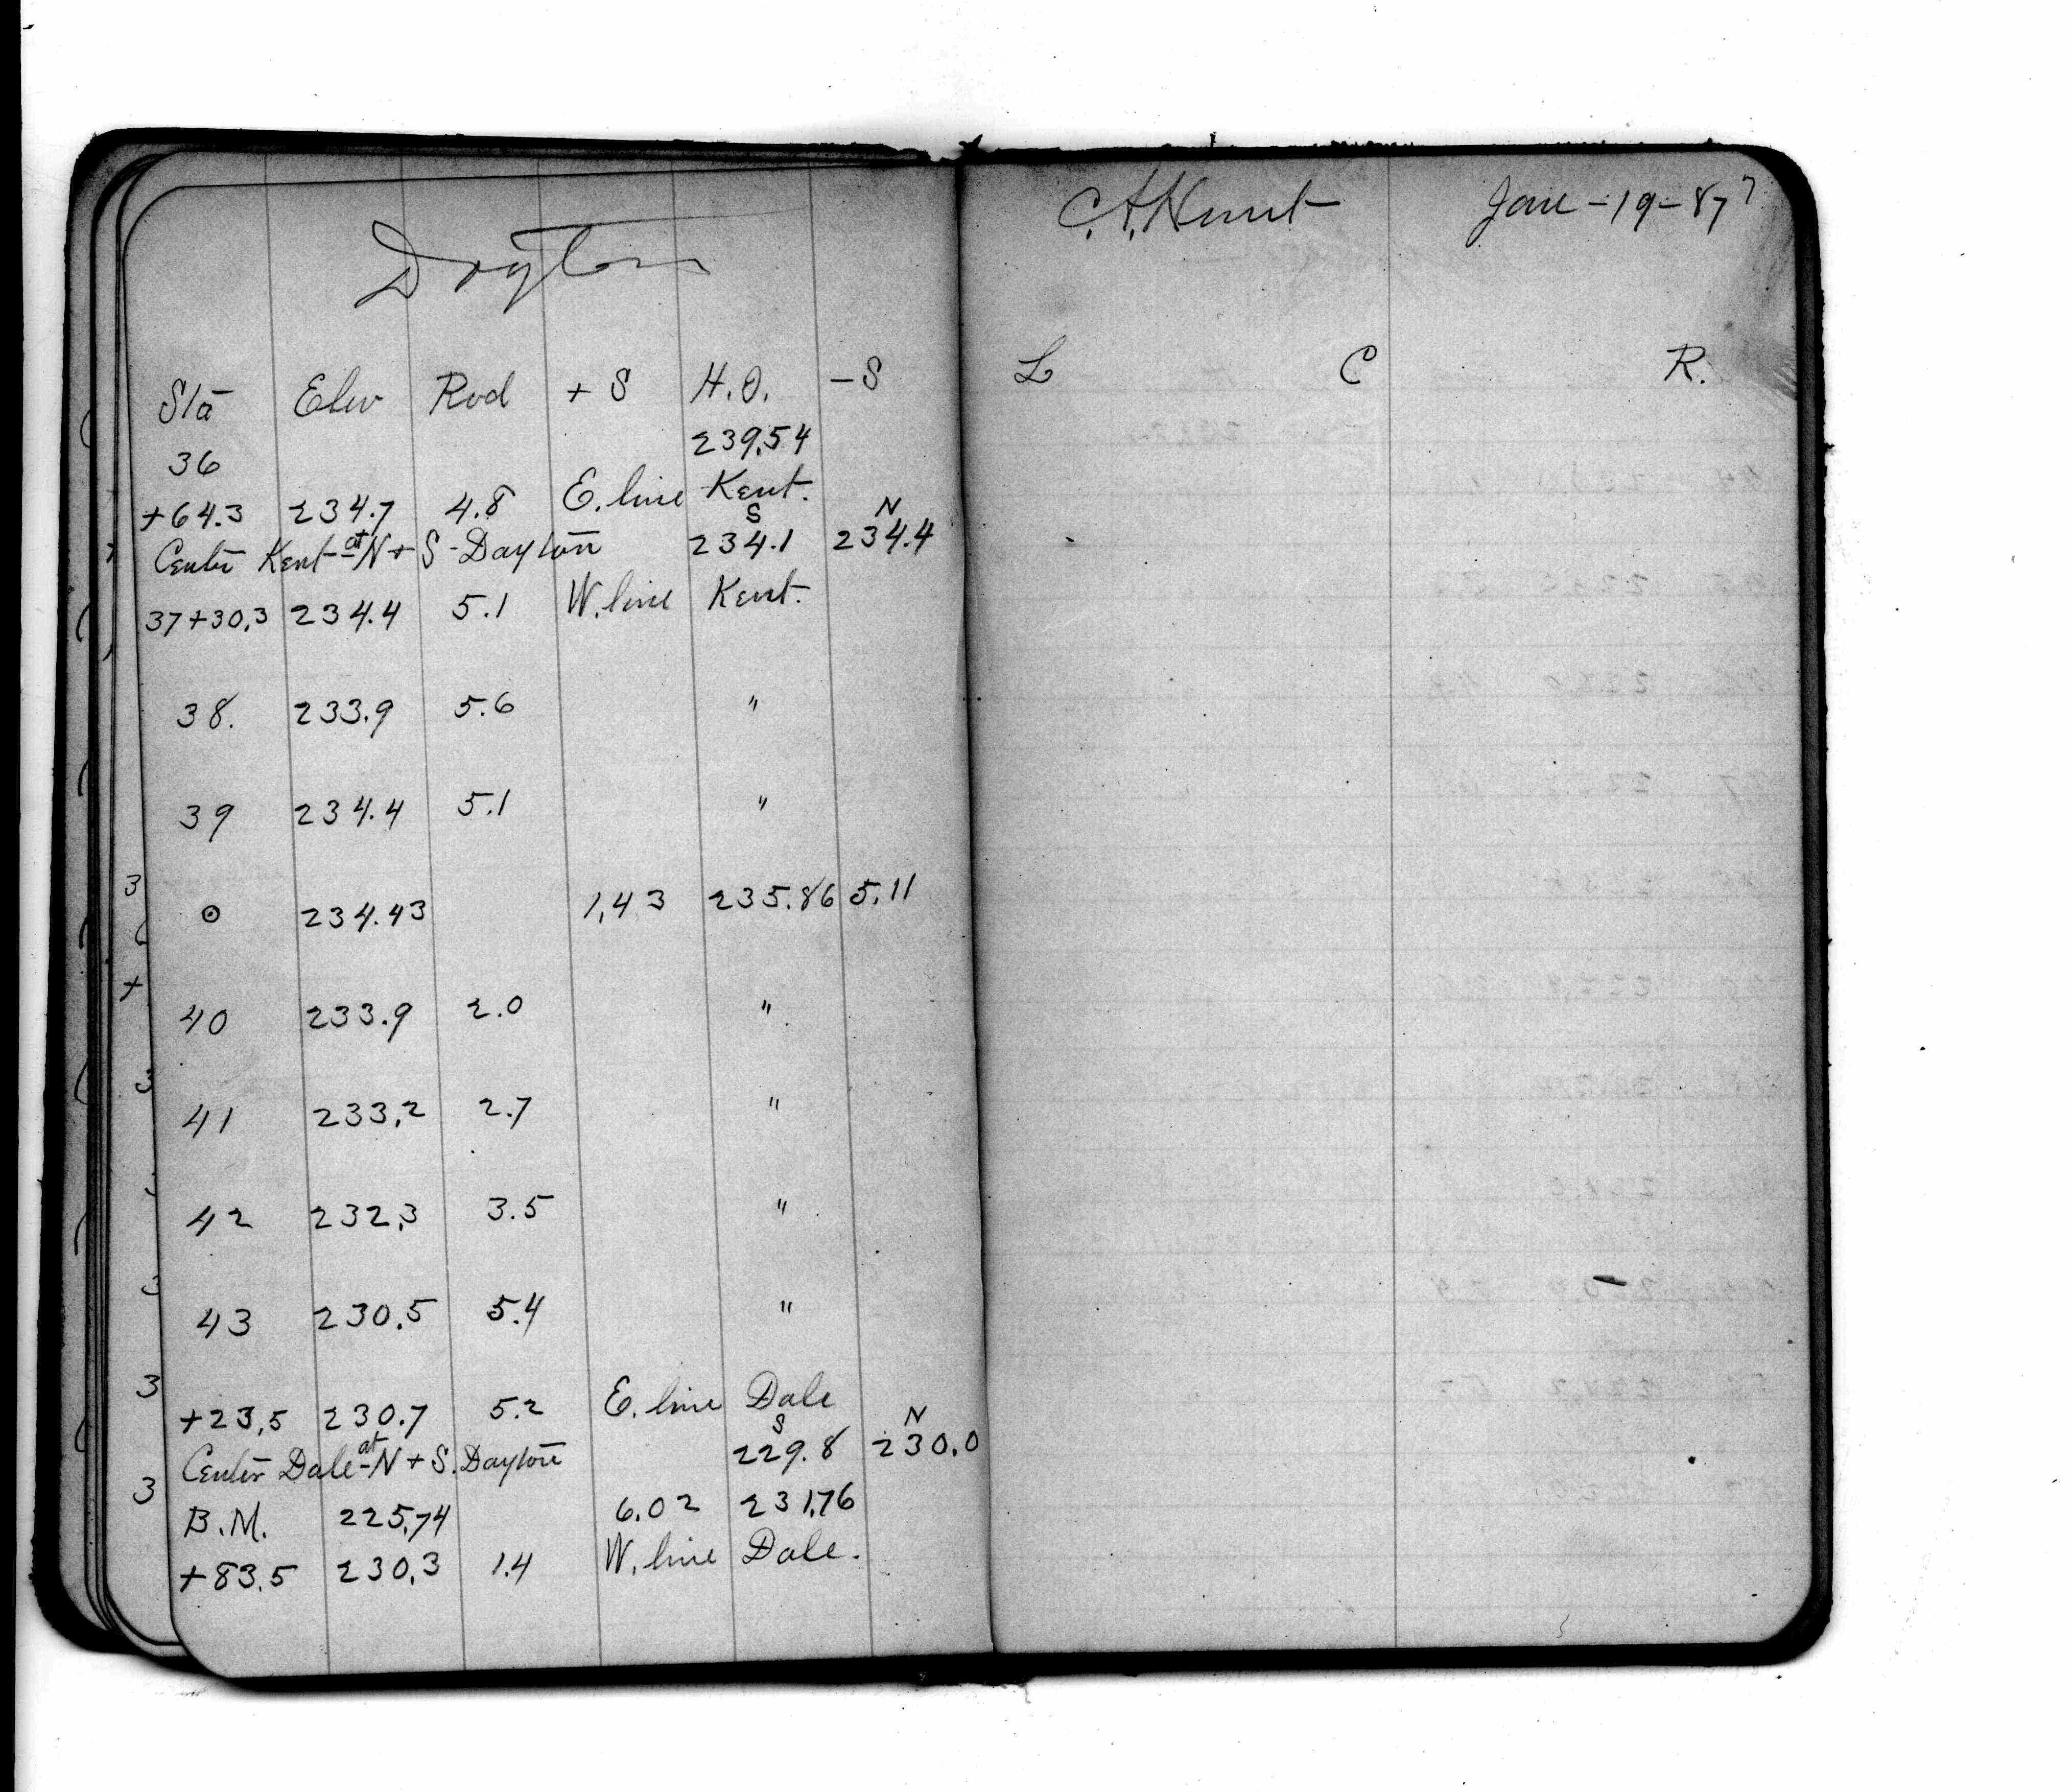 Dayton
Sta Elev Rod + S H.O. - S
239.54
36
+64.3 234.7 4.8 E. line Kent.
S N
Center Kent at N + S Dayton 234.1 234.4
37+30.3 234.4 5.1 W. line Kent.
38. 233.9 5.6 "
39 234.4 5.1 "
⊙ 234.43 1.43 235.86 5.11
40 233.9 2.0 "
41 233.2 2.7 "
42 232.3 3.5 "
43 230.5 5.4 "
+23.5 230.7 5.2 E. line Dale
S N
Center Dale at N + S. Dayton 229.8 230.0
B.M. 225.74 6.02 231.76
+83.5 230.3 1.4 W. line Dale.
C.A. Hunt
L C R.